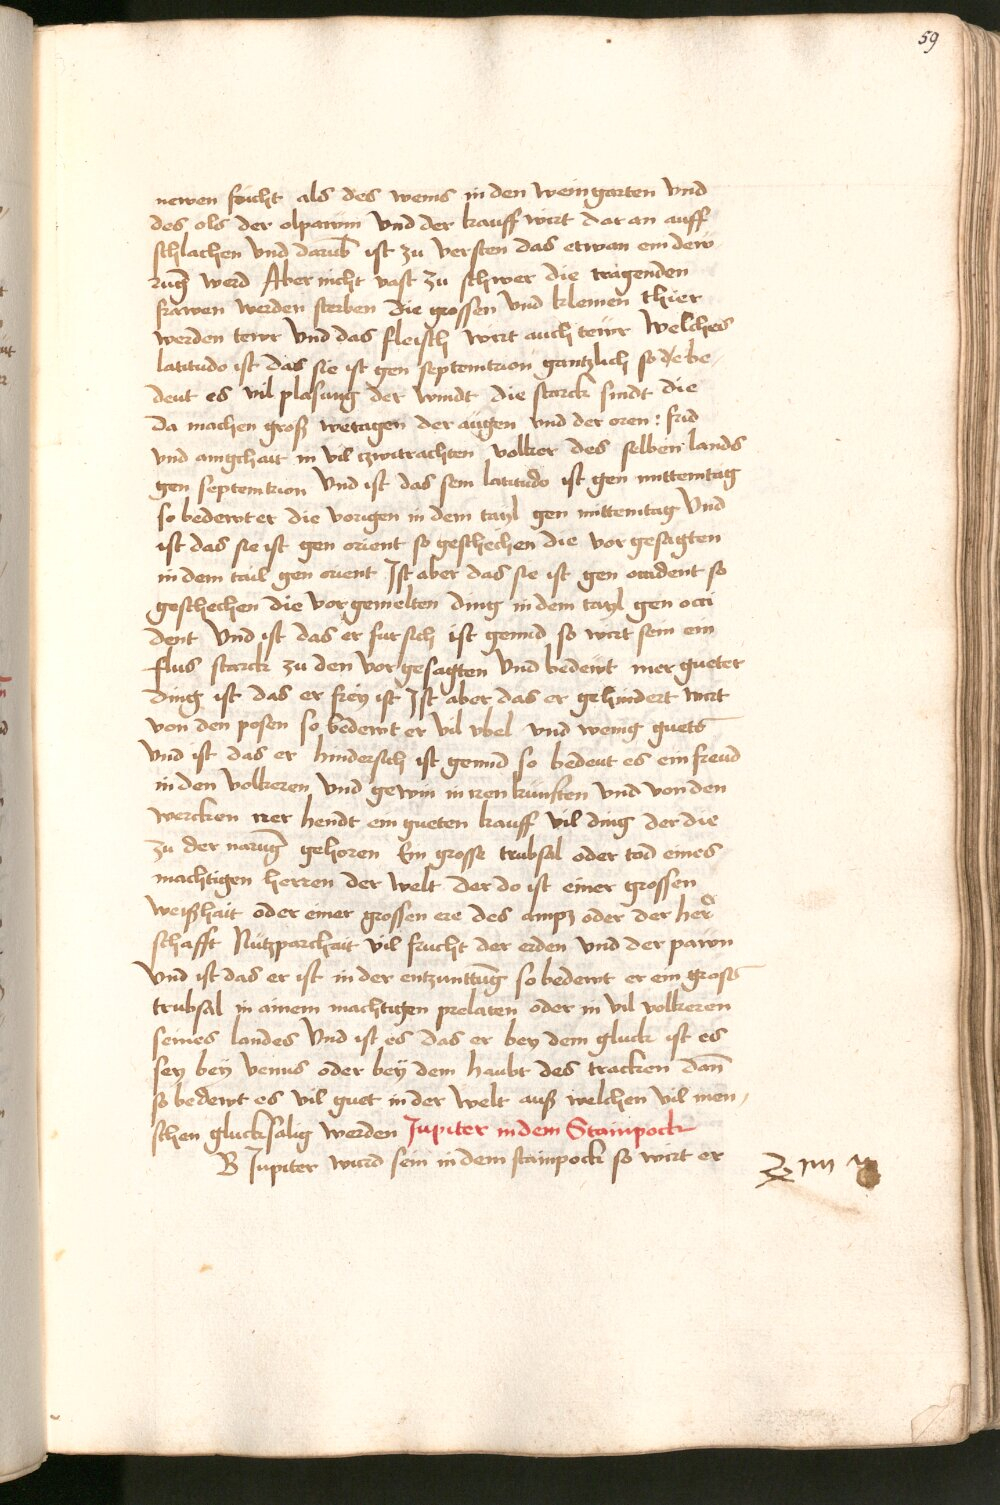 59
newen frucht als des weins in den weingarten Vnd
des ols der olpawm Vnd der kauff wirt dar an auff
schlachen Vnd darub̄ ist zu versten das etwan ein dew
ruḡ werd Aber nicht vast zu schwer die tragenden
frawen werden sterben die grossen Vnd kleinen thier
werden tewr Vnd das fleisch wirt auch tewr Welches
latitudo ist das sie ist gen septemtrion gantzlich so be-
deut es vil plasung der windt die starck sindt die
da machen groß wetagen der augen vnd der oren : frid
vnd ainigchait in vil zwitrachten volker des selben lands
gen septemtrion Vnd ist das sein latitudo ist gen mittemtag
so bedewt er die vorigen in dem tayl gen mittemtag Vnd
ist das sie ist gen orient so geschechen die vor gesagten
in dem tail gen orient Ist aber das sie ist gen occident so
geschechen die vor gemelten ding in dem tayl gen occi
dent Vnd ist das er fur sich ist gennd so wirt sein ein
flus starck zu den vor gesagten Vnd bedewt mer gueter
ding ist das er frey ist Ist aber das er gehindert wirt
von den posen so bedewt er vil vbel vnd wenig guets
Vnd ist das er hindersich ist gennd so bedeut es ein freud
in den volkeren Vnd gewin in iren kunsten Vnd von den
wercken irer hendt ein gueten kauff vil ding der die
zu der naruḡ gehoren Ein grosse trubsal oder tod eines
machtigen herren der welt der do ist einer grossen
weißhait oder einer grossen ere des ampz oder der her
schafft Nutzparchait vil frucht der erden vnd der pawm
Vnd ist das er ist in der entzunttuḡ so bedewt er ein gross
trubsal in ainem machtigen prelaten oder in vil volkeren
seines landes Vnd ist es das er bey dem gluck ist es
sey bey venus oder bey dem haubt des tracken dan̄
so bedewt es vil guet in der welt auß welchen vil men-
schen glucksalig werden Jupiter in dem Stainpock
Jupiter wurd sein in dem stainpock so wirt er